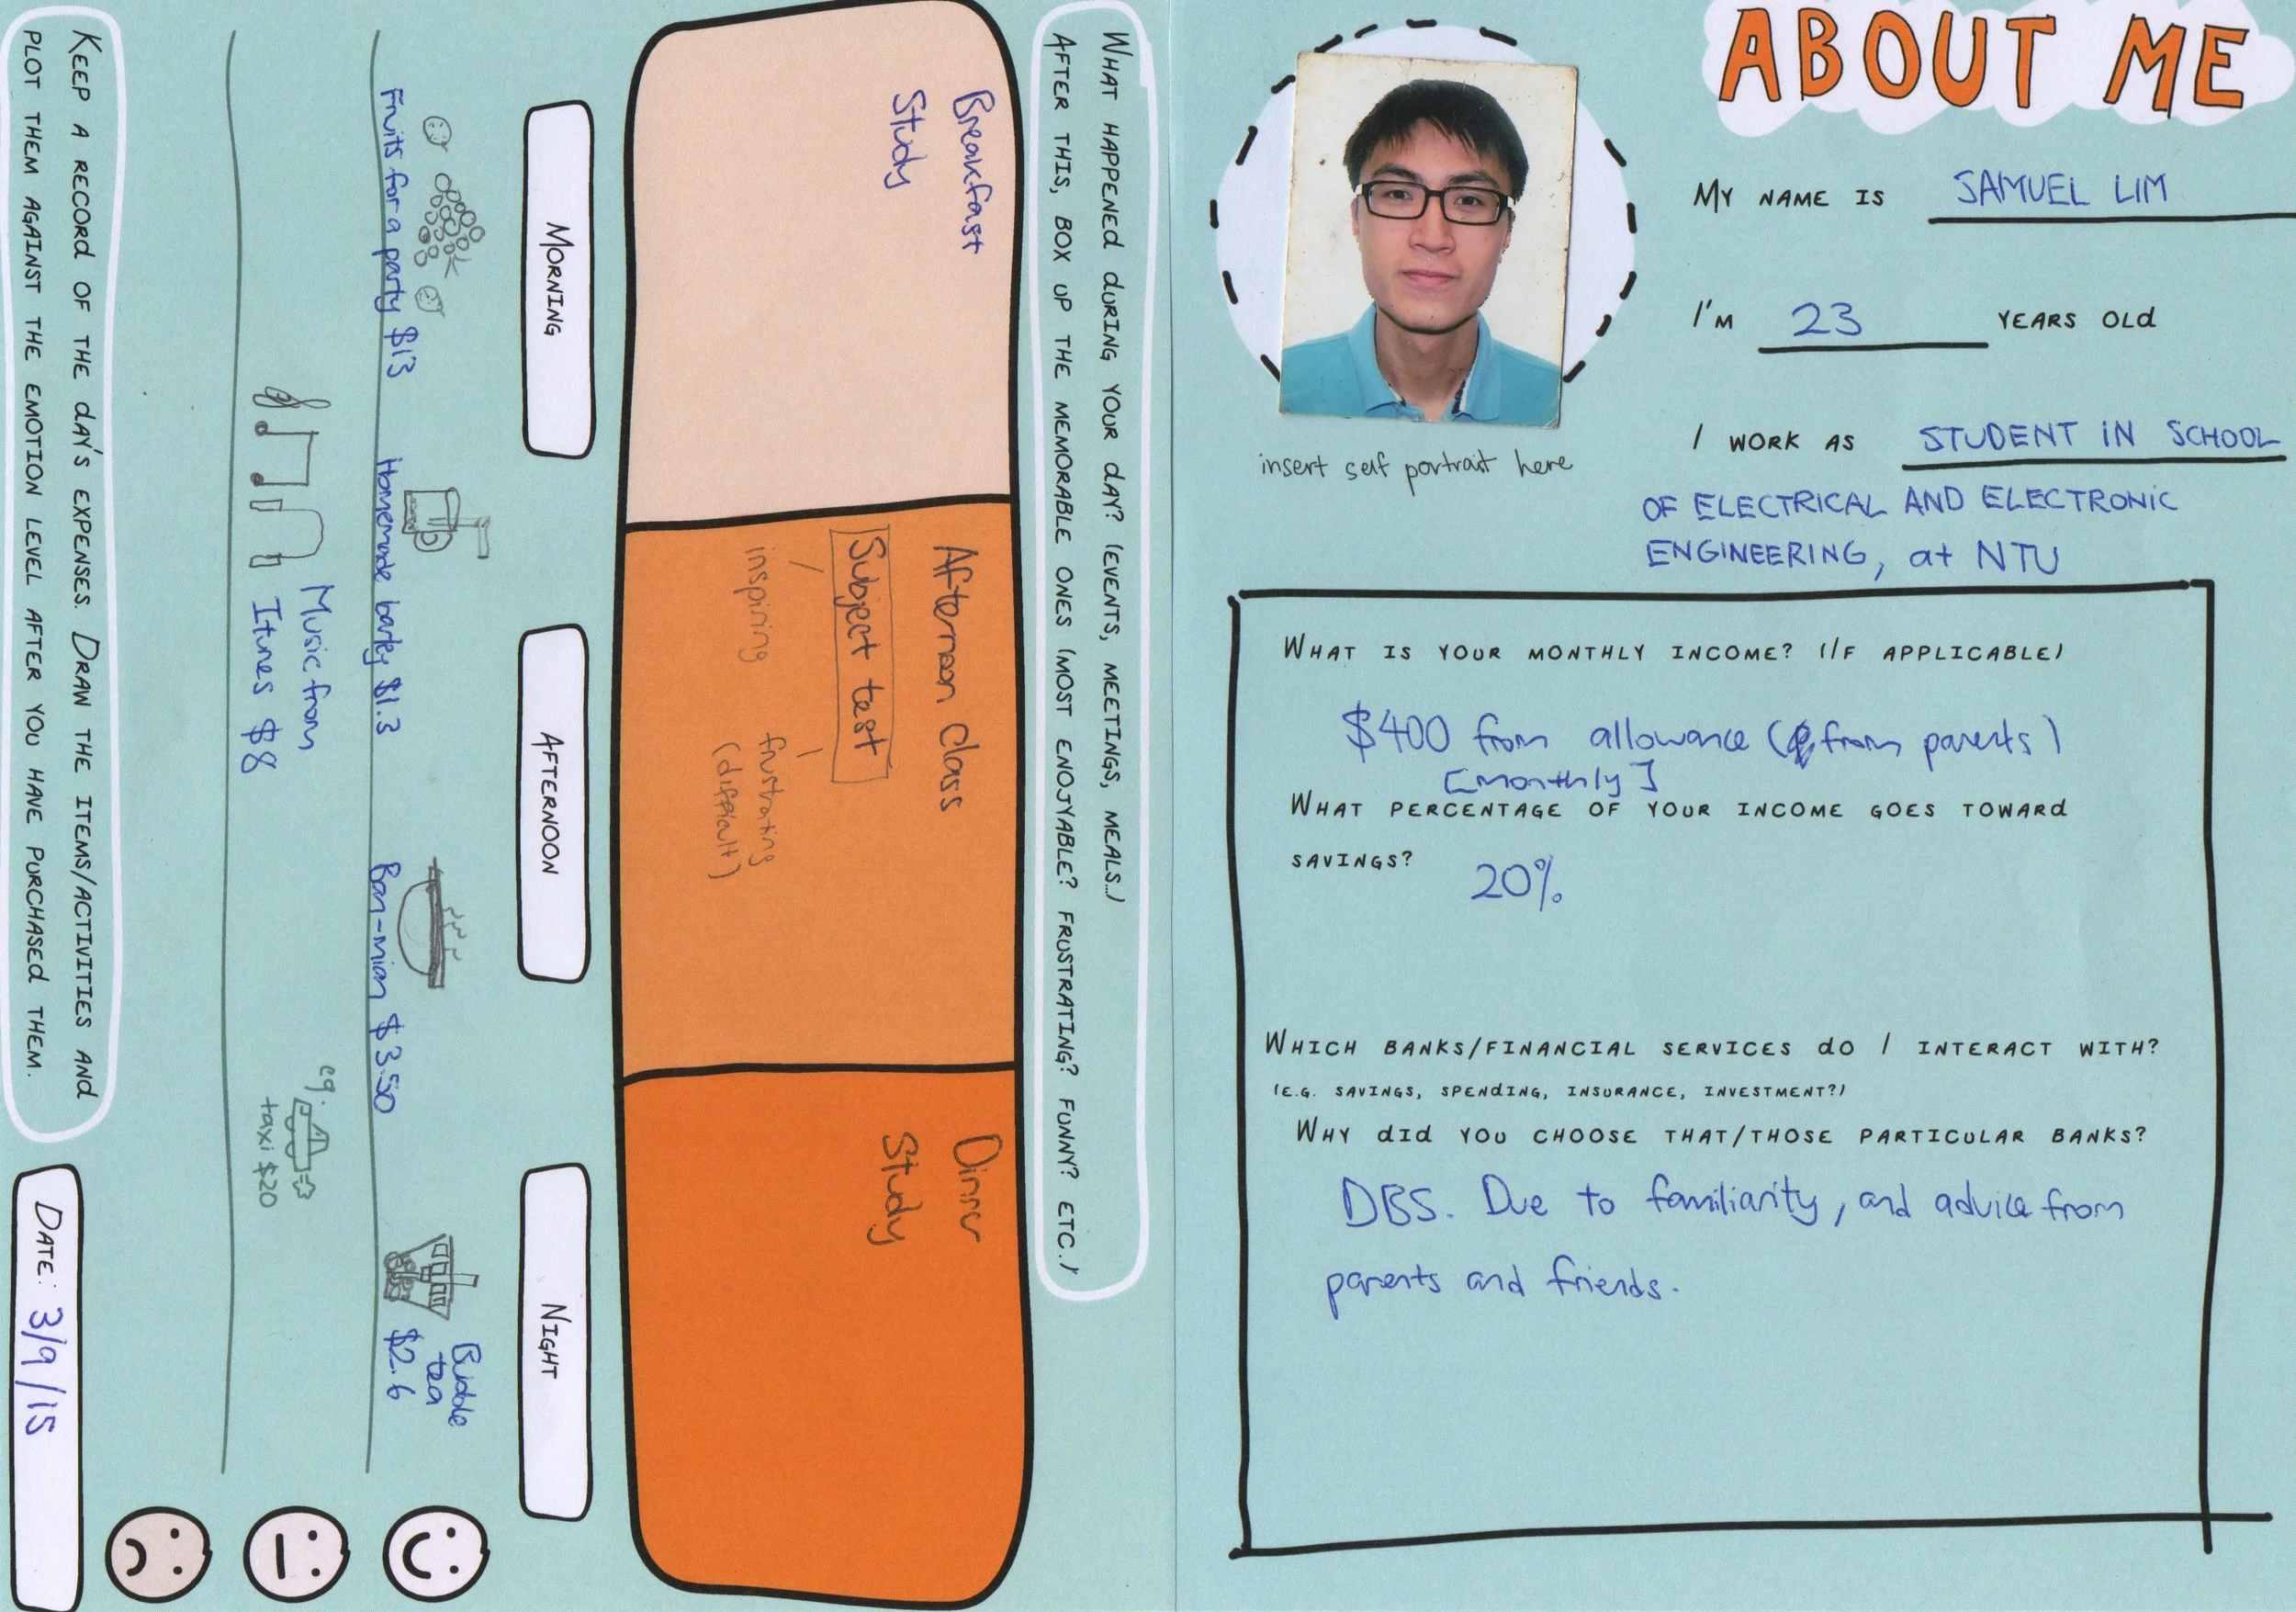 ABOUT ME
MY NAME IS SAMUEL LIM
I'M 23 YEARS OLD
I WORK AS STUDENT IN SCHOOL
OF ELECTRICAL AND ELECTRONIC
ENGINEERING, at NTU
insert self portrait here
WHAT IS YOUR MONTHLY INCOME? (IF APPLICABLE)
$400 from allowance (from parents)
[monthly]
WHAT PERCENTAGE OF YOUR INCOME GOES TOWARD
SAVINGS?
20%
WHICH BANKS/FINANCIAL SERVICES DO I INTERACT WITH?
(E.G. SAVINGS, SPENDING, INSURANCE, INVESTMENT?)
WHY DID YOU CHOOSE THAT/THOSE PARTICULAR BANKS?
DBS. Due to familiarity, and advice from
parents and friends.
WHAT HAPPENED DURING YOUR DAY? (EVENTS, MEETINGS, MEALS..)
AFTER THIS, BOX UP THE MEMORABLE ONES (MOST ENOJYABLE? FRUSTRATING? FUNNY? ETC.)
Breakfast
Study
Afternoon class
Subject test
inspiring
frustrating
(difficult)
Dinner
Study
MORNING
AFTERNOON
NIGHT
Fruits for a party $13
Homemade barley $1.3
Ban-mian $3.50
Bubble
tea
$2.6
Music from
Itunes $8
eg.
taxi $20
KEEP A RECORD OF THE DAY'S EXPENSES. DRAW THE ITEMS/ACTIVITIES AND
PLOT THEM AGAINST THE EMOTION LEVEL AFTER YOU HAVE PURCHASED THEM.
DATE: 3/9/15